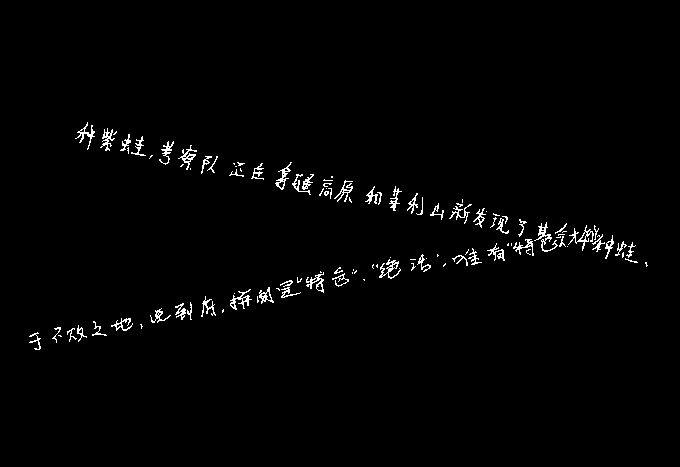 种紫蛙,考察队还在拿骚高原和莱利山新发现了其余种蛙、
于不败之地,说到底,拼的是“特色”、“绝活”,唯有“特色